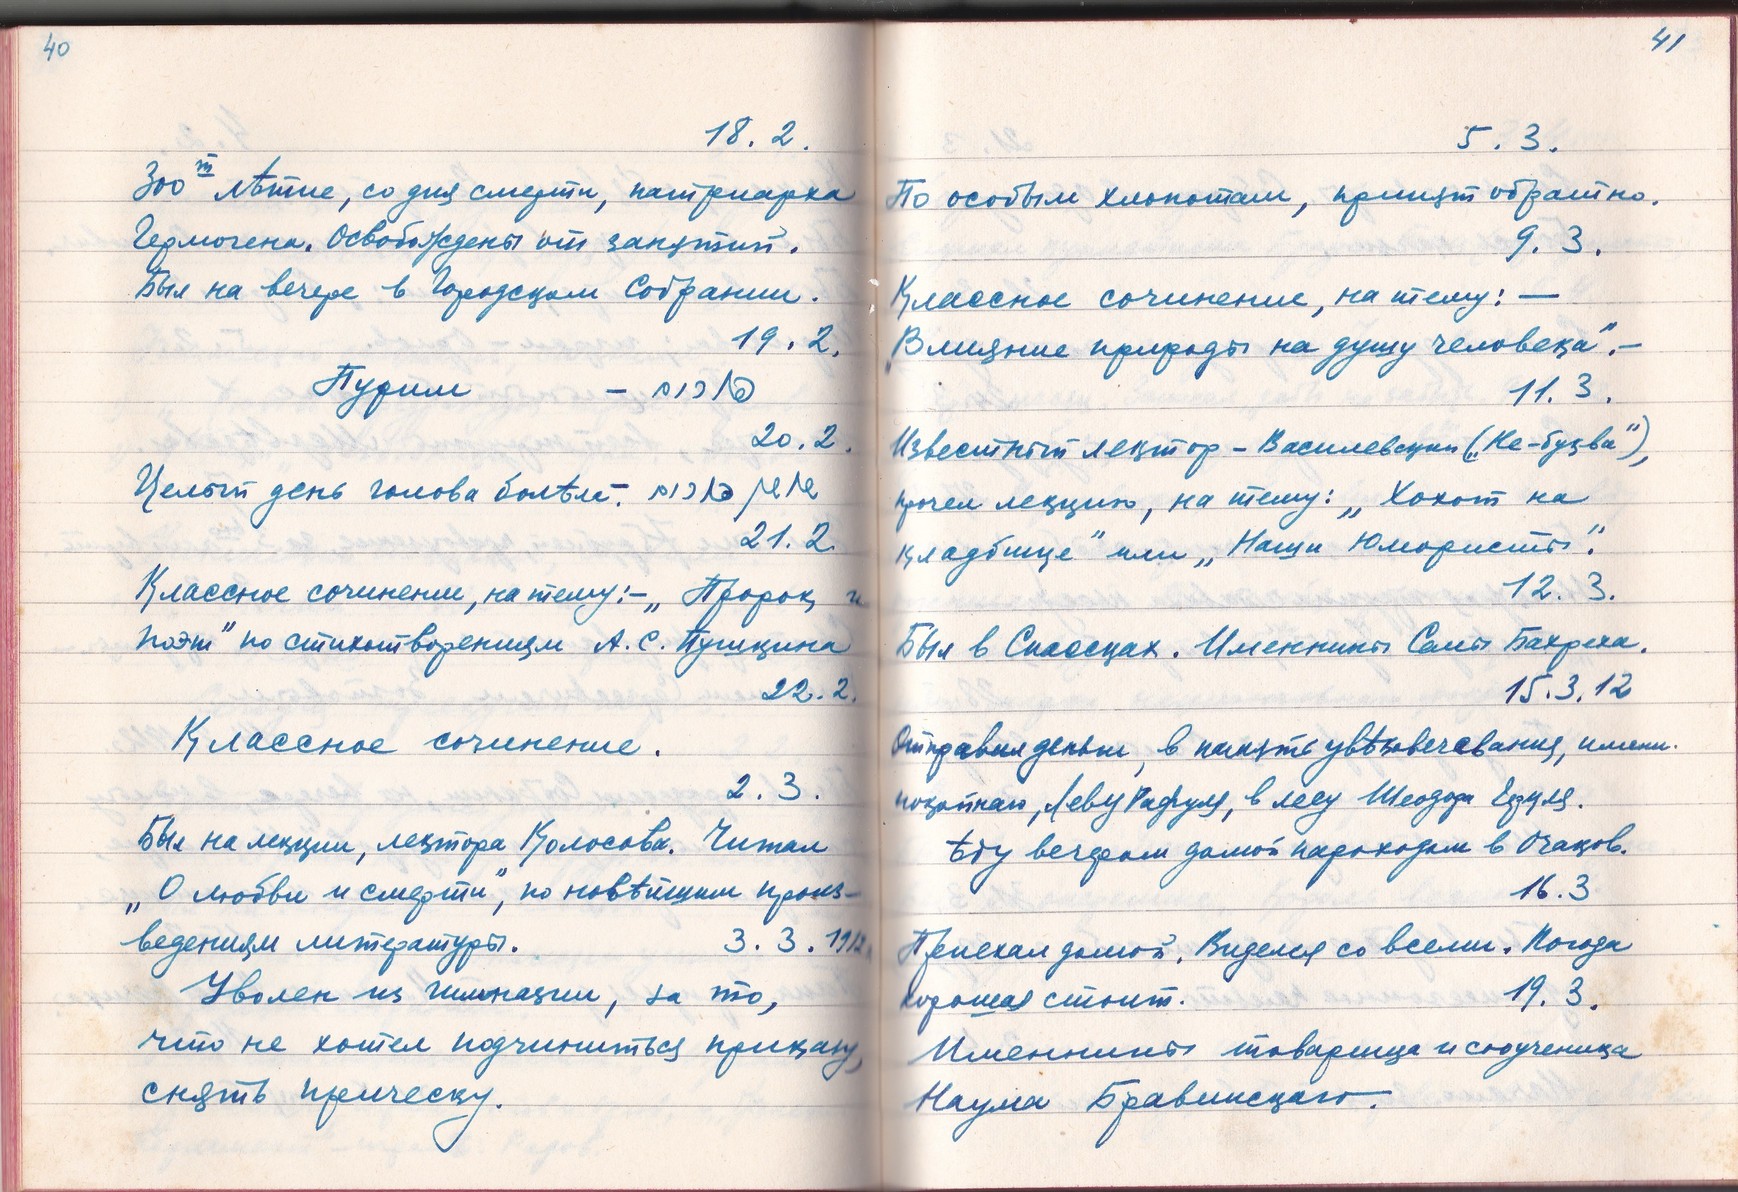 40
18. 2.
300 т лѣтие, со дня смерти, патриарха
Гермогена. Освобождены от занятий.
Был на вечере в Городском Собрании.
19. 2.
Пурим – פורים
20. 2.
Целый день голова болѣла.
21. 2.
Классное сочинение, на тему:– „Пророк и
поэт" по стихотворениям А. С. Пушкина
22. 2.
Классное сочинение.
2. 3.
Был на лекции, лектора Колосова. Читал
„О любви и смерти", по новѣйшим произ-
ведениям литературы. 3. 3. 1912
Уволен из гимназии, за то,
что не хотел подчиниться приказу,
снять прическу.
41
5. 3.
По особым хлопотам, принят обратно.
9. 3.
Классное сочинение, на тему: —
„Влияние природы на душу человека".–
11. 3.
Известный лектор – Василевский („Не-буква"),
прочел лекцию, на тему: „Хохот на
кладбище" или „Наши Юмористы".
12. 3.
Был в Спасских. Именины Самы Бахреха.
15. 3. 12
Отправил деньги, в память увѣковечевания, имени
покойнаго, в лесу Теодора Герцля.
Ѣду вечером домой пароходом в Очаков.
16. 3
Приехал домой. Виделся со всеми. Погода
хорошая стоит. 19. 3.
Именины товарища и соученика
Наума Бравинскаго.